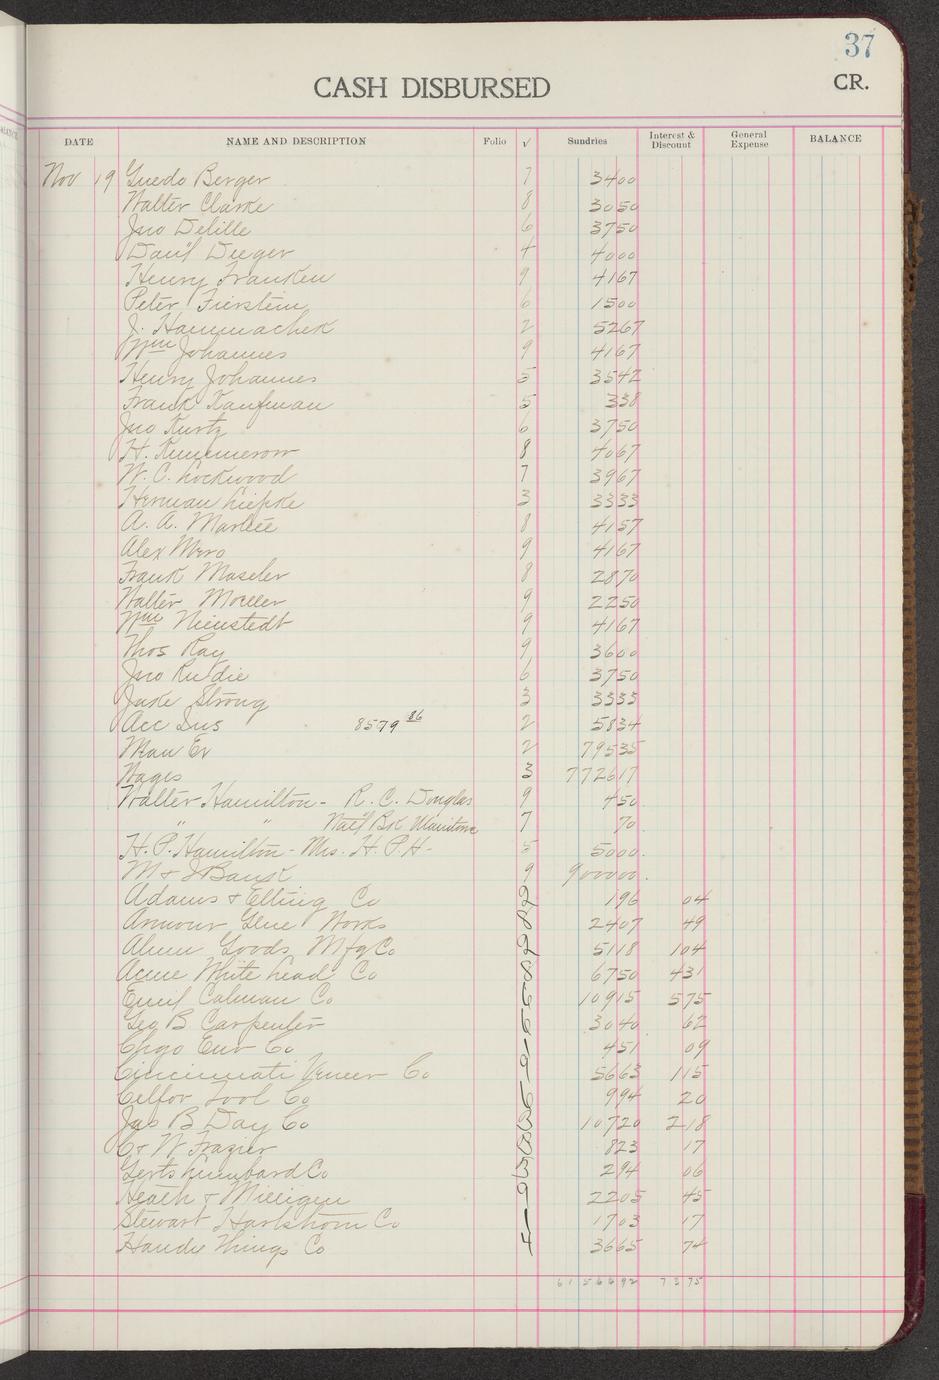 37
CASH DISBURSED
CR.
DATE NAME AND DESCRIPTION Folio √ Sundries Interest & Discount General Expense BALANCE
Nov 19 Guedo Berger 7 3400
Walter Clarke 8 3050
Jno Delille 6 3750
Dan'l Deeger 4 4000
Henry Franken 9 4167
Peter Fierstein 6 1500
J. Hammachek 2 5267
Wm Johannes 9 4167
Henry Johannes 5 3542
Frank Kaufman 5 338
Jno Kurtz 6 3750
H. Kummerow 8 4067
W. C. Lockwood 7 3967
Herman Liepke 3 3333
A. A. 8 4157
Alex Mero 9 4167
Frank Maseler 8 2870
Walter Moeller 9 2250
Wm Nienstedt 9 4167
Thos Ray 9 3600
Jno Rudie 6 3750
Jake Strong 3 3333
Acc Ins 8579 86 2 5834
Man Ex 2 79535
Wages 3 772617
Walter Hamilton - R. C. Douglas 9 450
" " Nat'l Bk Manitowoc 7 70
H. P. Hamilton - Mrs. H. P. H - 5 5000
M & J Bank 9 900000
Adams & Elting Co 196 04
Armour Glue Works 2407 49
Alum Goods Mfg Co 5118 104
Acme White Lead Co 6750 431
Emil Calman Co 10915 575
Geo B Carpenter 3040 62
Chgo Env Co 451 09
Cincinnati Veneer Co 5663 115
Celfor Tool Co 994 20
Jas B Day Co 10720 218
C & W Frazier 823 17
Gerts Lumbard Co 294 06
Heath & Milligan 2205 45
Stewart Hartshorn Co 1703 17
Handie Things Co 3665 74
7375